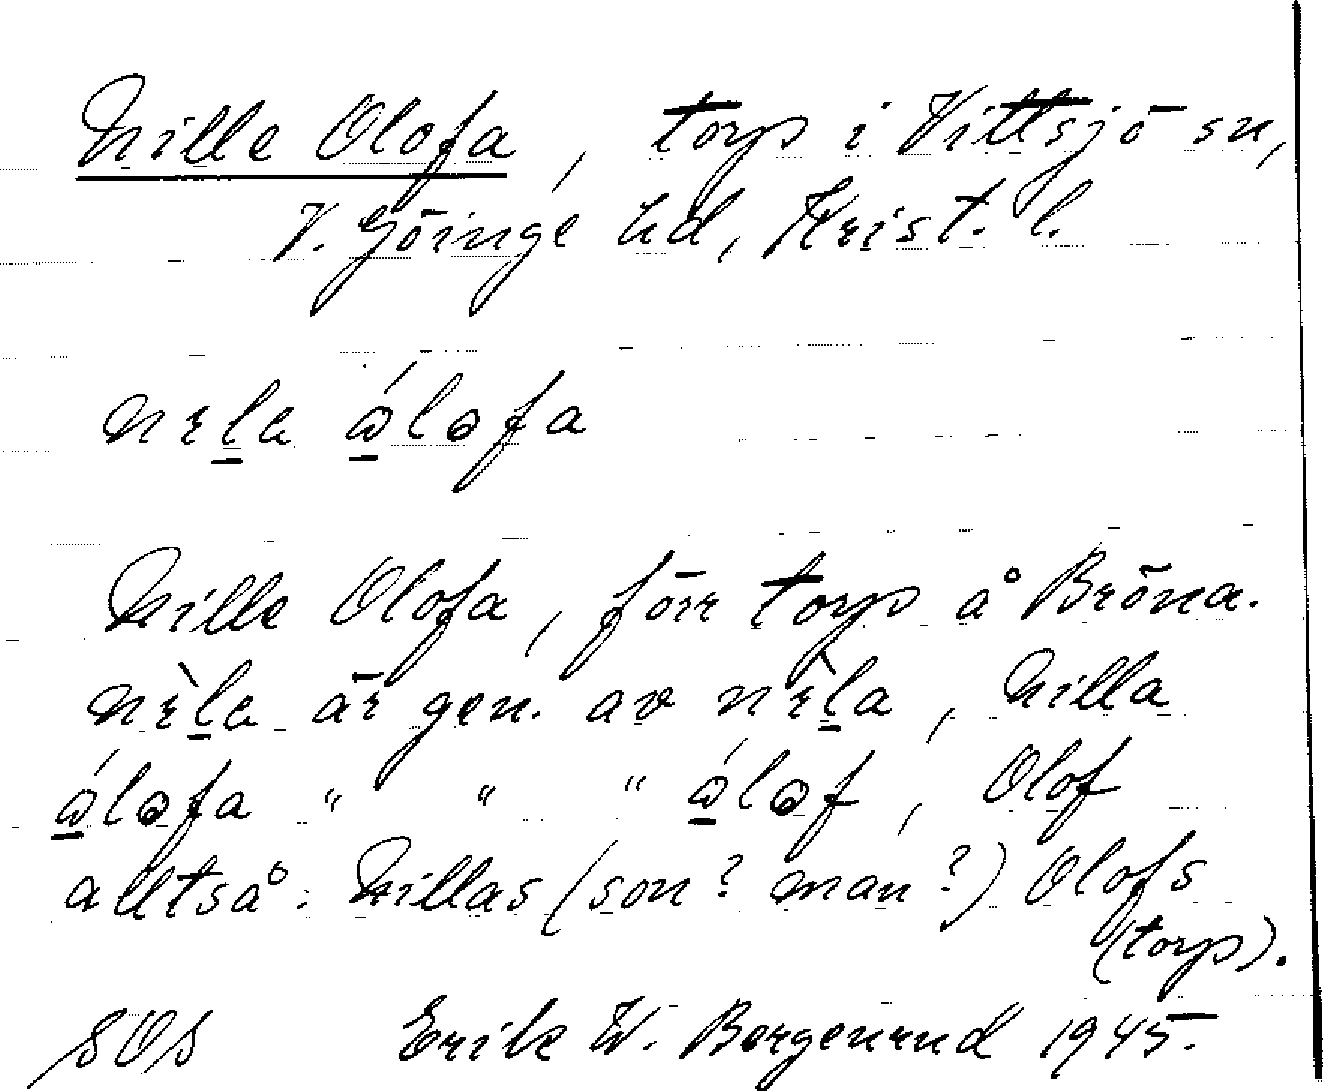 Nille Olofa, torp i Vittsjö sn,
V. Göinge hd, Krist. l.
nɪla ólofa
Nille Olofa, förr torp å Bröna.
nɪ̀la är gen. av nɪ̀la, Nilla
ólofa " " " ólof, Olof
alltså: Nillas (son? man?) Olofs
(torp).
SOS Erik W. Borgenrud 1945.